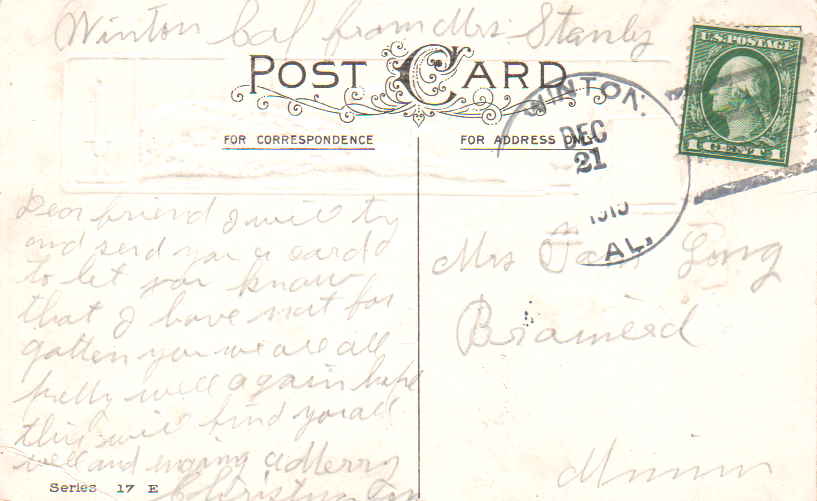 Winton Cal from Mrs Stanly
POST CARD
FOR CORRESPONDENCE
FOR ADDRESS ONLY
U.S. POSTAGE
1 CENT 1
WINTON
DEC
21
AL.
Dear friend I will try
and send you a card
to let you know
that I have not for
gotten you we are all
pretty well again hope
this will find you all
well and injoying a Merry
Christmas
Mrs Long
Brainerd
Minn
Series 17 E